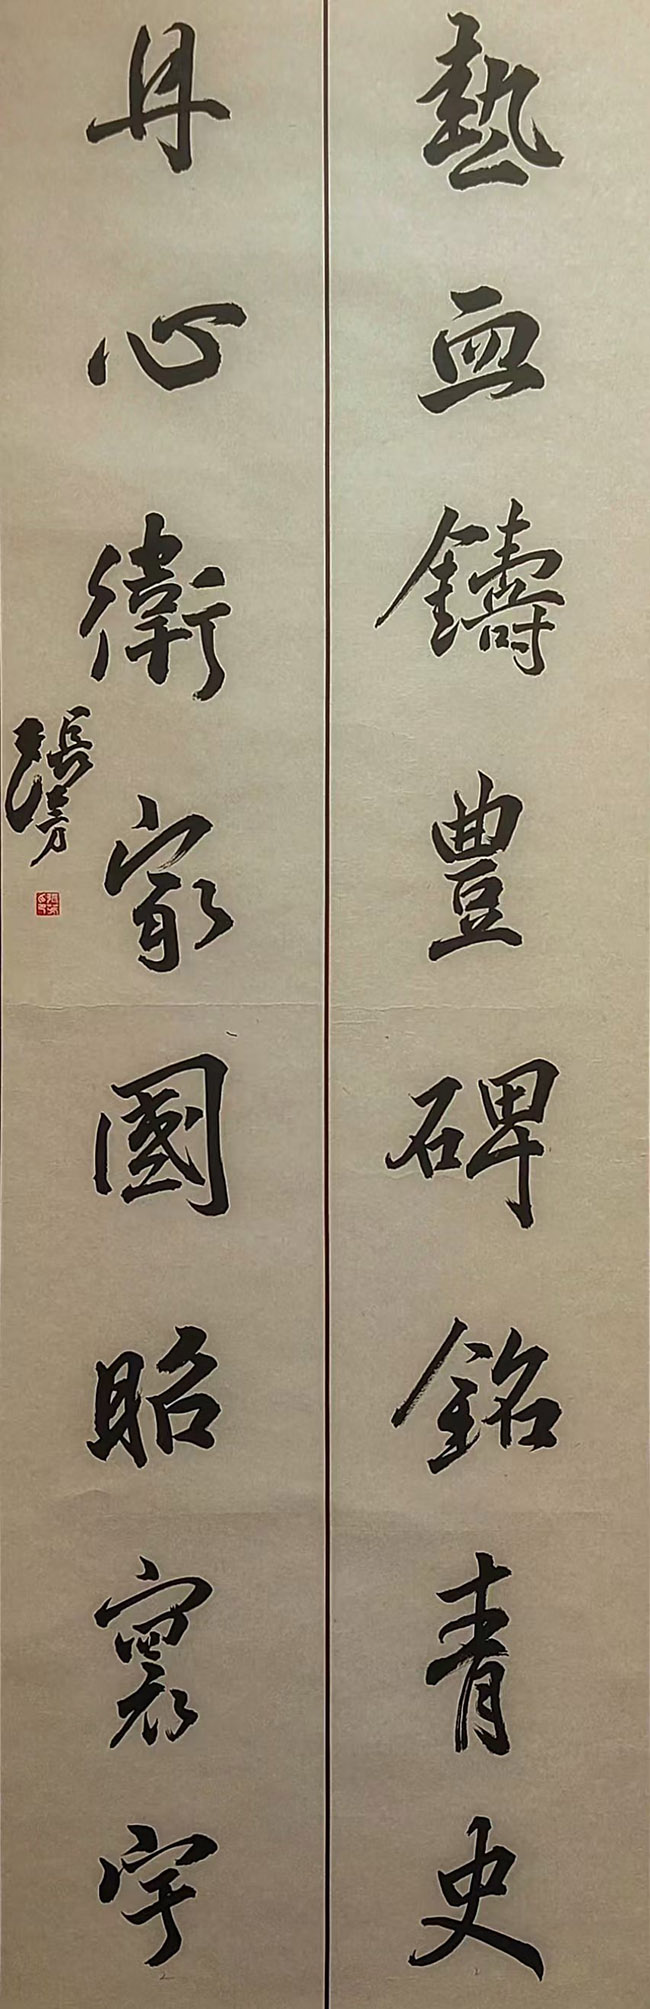 熱血鑄豐碑銘青史
丹心衛家國昭寰宇